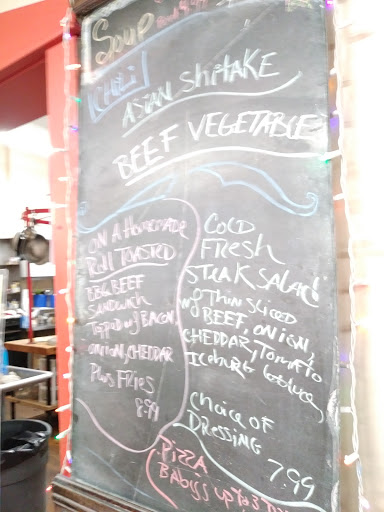 Soup
CHILI
ASIAN SHITAKE
BEEF VEGETABLE
ON A Homemade
Roll TOASTED
BBQ BEEF
SANDWICH
Topped w/ BACON,
ONION, CHEDDAR
Plus FRIES
8.99
COLD
FRESH
STEAK SALAD
w/ THIN SLICED
BEEF, ONION,
CHEDDAR, TOMATO
Iceburg
Choice OF
DRESSING
7.99
PIZZA
BABYS UP TO 3